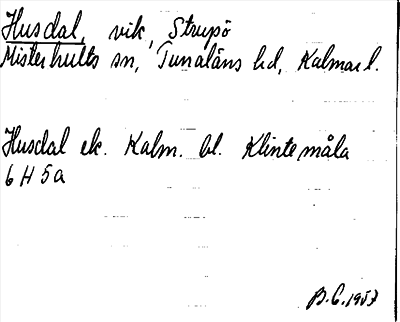 Husdal, vik, Strupö
Misterhults sn, Tunaläns hd, Kalmar l.
Husdal ek. Kalm. bl. Klintemåla
6 H 5a
B.C. 1953